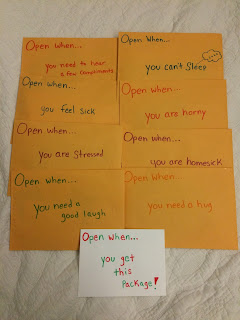 Open when...
you need to hear
a few compliments
Open When...
you can't Sleep
Open When...
you feel sick
Open When...
you are horny
Open When...
you are stressed
Open When...
you are homesick
Open When...
you need a
good laugh
Open When...
you need a hug
Open When...
you get
this
Package!